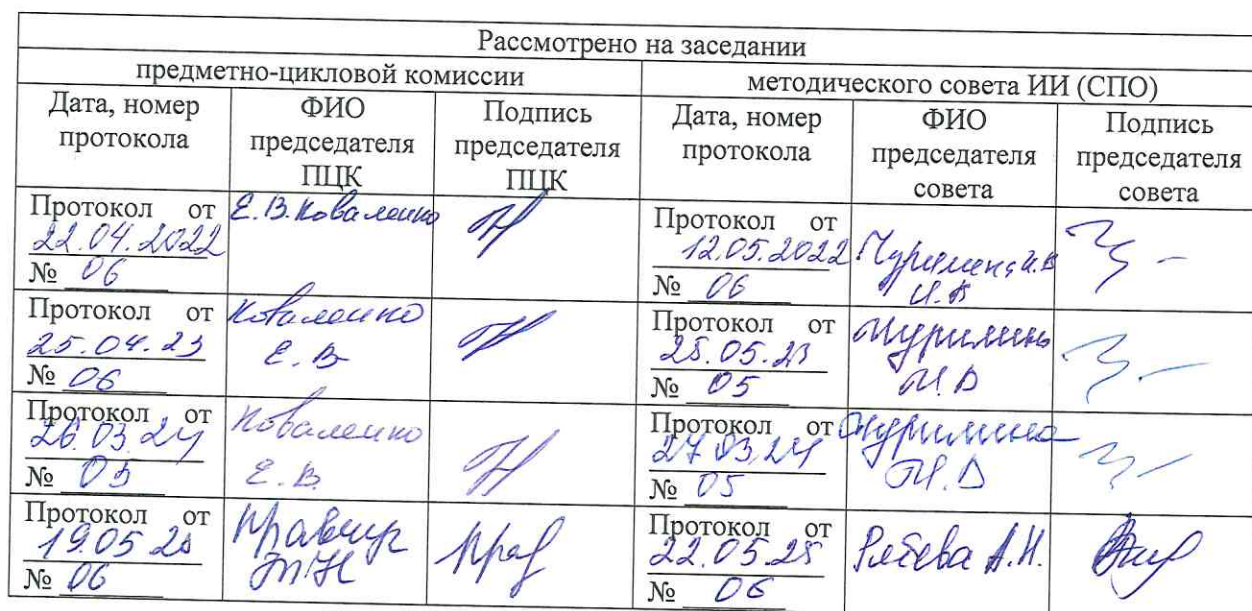 Рассмотрено на заседании
предметно-цикловой комиссии
методического совета ИИ (СПО)
Дата, номер
протокола
ФИО
председателя
ПЦК
Подпись
председателя
ПЦК
Дата, номер
протокола
ФИО
председателя
совета
Подпись
председателя
совета
Протокол от
22.04.2022
№ 06
Е.В. Коваленко
Протокол от
12.05.2022
№ 06
Протокол от
25.04.23
№ 06
Коваленко
Е.В
Протокол от
25.05.23
№ 05
Протокол от
26.03.24
№ 05
Коваленко
Е.В.
Протокол от
27.03.24
№ 05
Протокол от
19.05
№ 06
Протокол от
22.05.25
№ 06
А.Н.